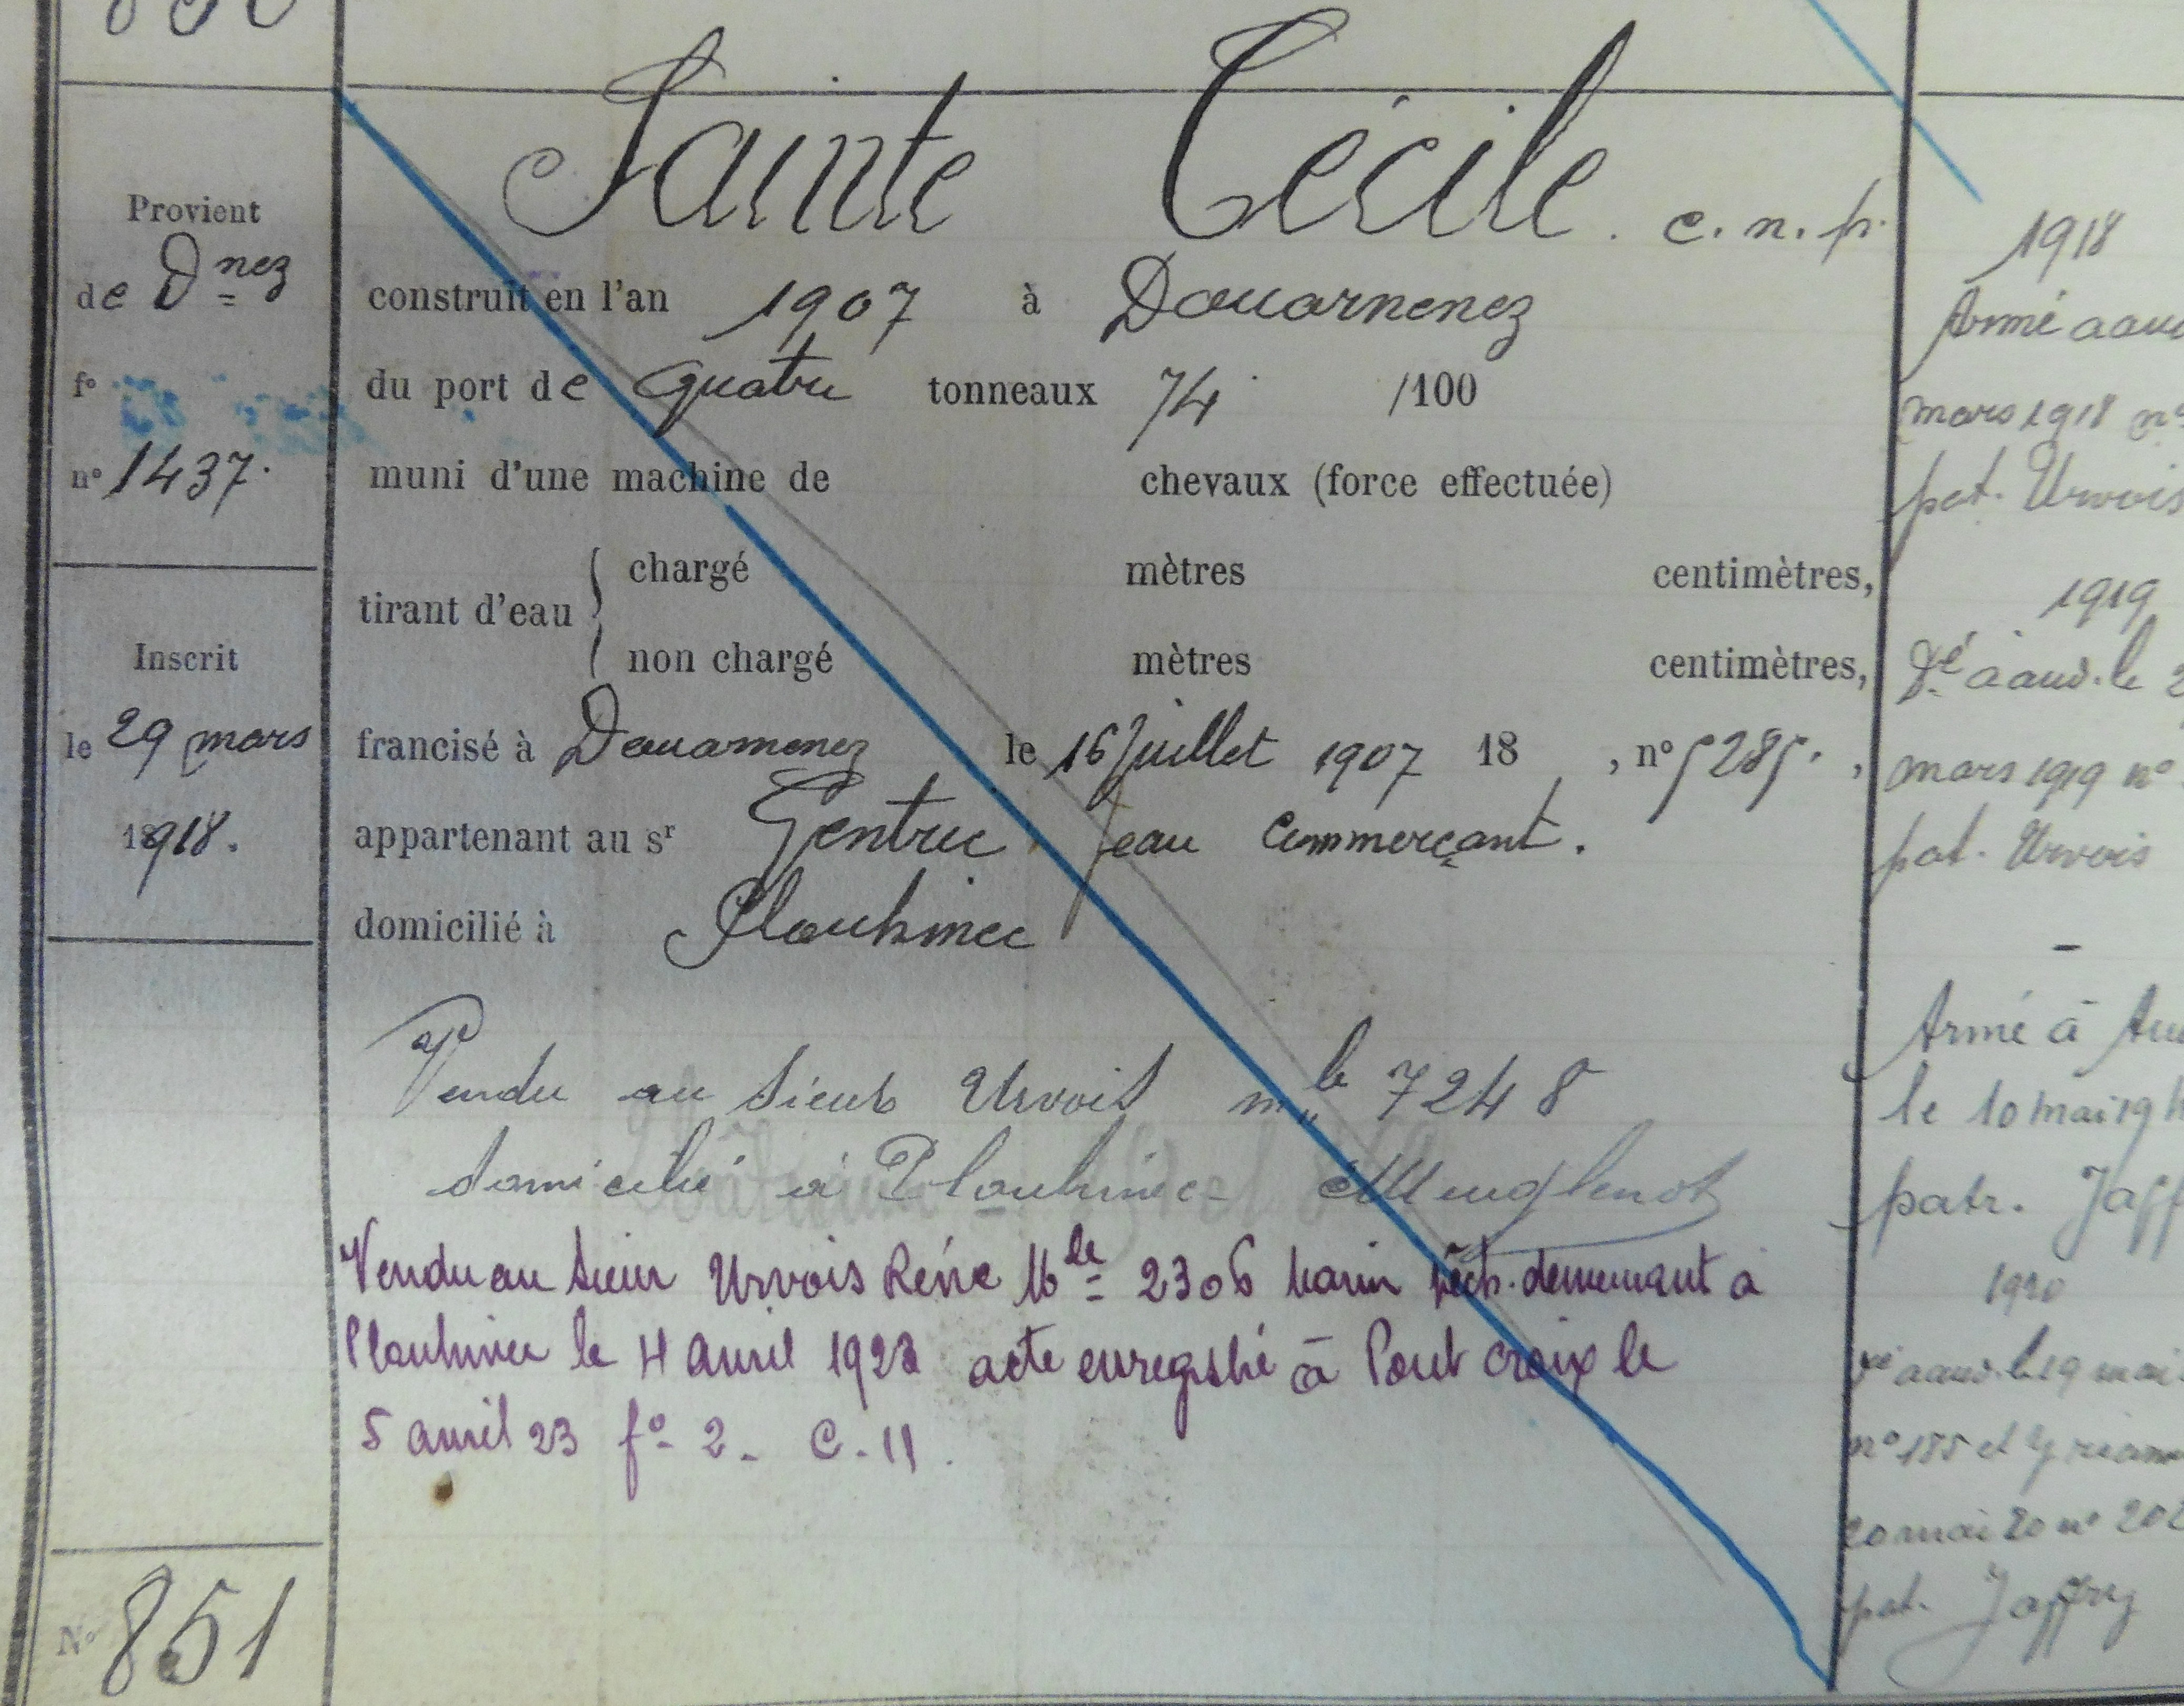 Sainte Cécile. c. n. p.
Provient
de Dnez
fo
no 1437.
Inscrit
le 29 mars
1918.
No 851
construit en l'an 1907 à Douarnenez
du port de quatre tonneaux 74 /100
muni d'une machine de chevaux (force effectuée)
tirant d'eau { chargé mètres centimètres,
non chargé mètres centimètres,
francisé à Douarnenez le 16 Juillet 1907 18 , no 5285. ,
appartenant au sr Gentric Jean Commerçant.
domicilié à Plouhinec
Vendu au Sieur Urvois mle 7248
domicilié à Plouhinec
Vendu au Sieur Urvois Réné Mle 2306 marin pêch. demeurant à
Plouhinec le 4 avril 1923 acte enregistré à Pont croix le
5 avril 23 fo 2. C. 11.
1918
Armé a aud
mars 1918 no
pat. Urvois
1919
Dé à aud. le 2
mars 1919 no
pat. Urvois
Armé à Au
le 10 mai 19
patr. Jaff
1920
aaud. le 19 mai
no 185 et
20 mai 20 no 202
pat. Jaffry